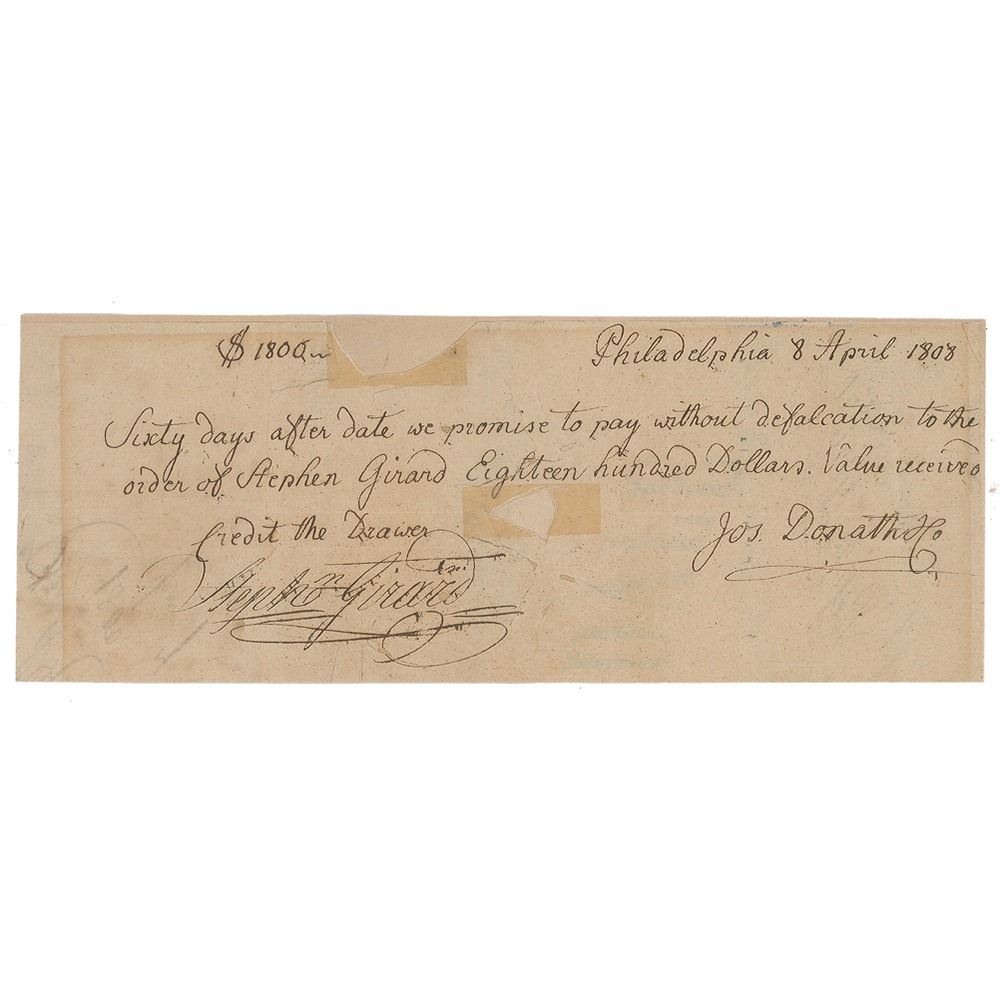 $ 1800
Philadelphia 8 April 1808
Sixty days after date we promise to pay without defalcation to the
order of Stephen Girard Eighteen hundred Dollars. Value received
Credit the Drawer
Jos. Donath & Co
Stephn Girard